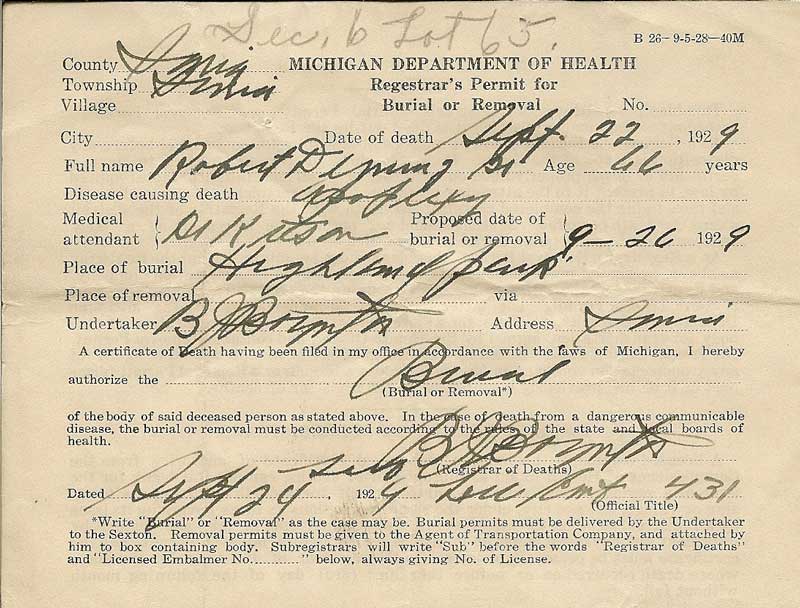 Sec. 6 Lot 65.
B 26—9-5-28—40M
County Ionia MICHIGAN DEPARTMENT OF HEALTH
Township Ionia Regestrar's Permit for
Village Burial or Removal No.
City Date of death Sept. 22, 1929
Full name Robert DeYoung Sr Age 66 years
Disease causing death apoplexy
Medical attendant Dr Kitson Proposed date of burial or removal 9-26 1929
Place of burial Highland park
Place of removal via
Undertaker B J Boynton Address Ionia
A certificate of Death having been filed in my office in accordance with the laws of Michigan, I hereby
authorize the Burial
(Burial or Removal*)
of the body of said deceased person as stated above. In the case of death from a dangerous communicable
disease, the burial or removal must be conducted according to the rules of the state and local boards of
health.
Sub B J Boynton
(Registrar of Deaths)
Dated Sept 24, 1929 Lic Emb 431
(Official Title)
*Write "Burial" or "Removal" as the case may be. Burial permits must be delivered by the Undertaker
to the Sexton. Removal permits must be given to the Agent of Transportation Company, and attached by
him to box containing body. Subregistrars will write "Sub" before the words "Registrar of Deaths"
and "Licensed Embalmer No............" below, always giving No. of License.